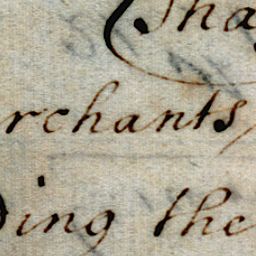 Tha
rchants,
ding the